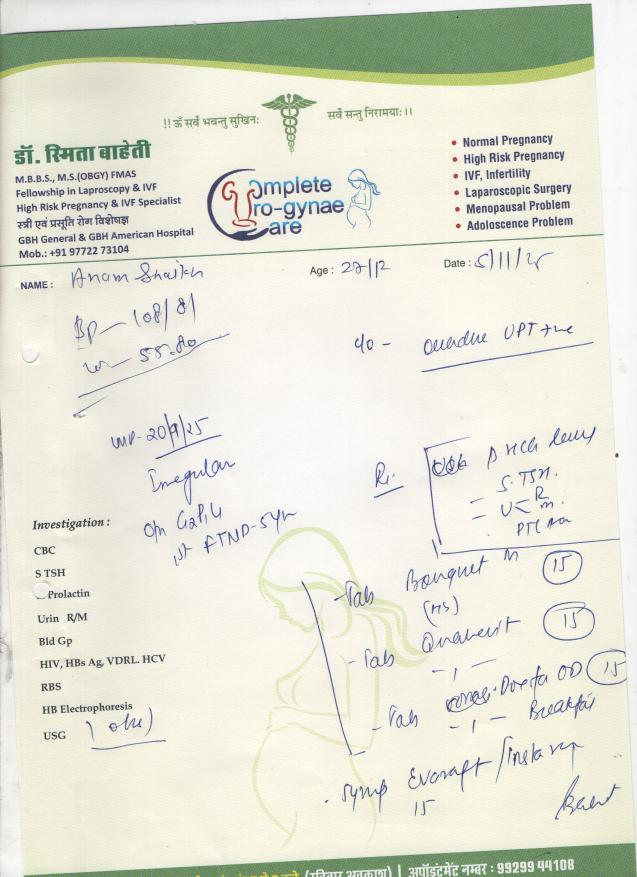 !!ॐ सर्वे भवन्तु सुखिनः सर्वे सन्तु निरामयाः।।
डॉ. स्मिता बाहेती
M.B.B.S., M.S.(OBGY) FMAS
Fellowship in Laproscopy & IVF
High Risk Pregnancy & IVF Specialist
स्त्री एवं प्रसूति रोग विशेषज्ञ
GBH General & GBH American Hospital
Mob.: +91 97722 73104
Complete
Uro-gynae
Care
• Normal Pregnancy
• High Risk Pregnancy
• IVF, Infertility
• Laparoscopic Surgery
• Menopausal Problem
• Adoloscence Problem
NAME : Anam Shaikh Age : 27/12 Date : 5/11/25
BP - 108/81
55.80
c/o - overdue UPT +ve
LMP - 20/9/25
Irregular
O/H G2P1L1
1st FTND - 5yr
Rx
β HCG
- S. TSH.
- U < R
M.
Investigation :
CBC
S TSH
Prolactin
Urin R/M
Bld Gp
HIV, HBs Ag, VDRL. HCV
RBS
HB Electrophoresis
USG
- Tab 15
(HS)
- Tab 15
- 1 -
- Tab OD 15
- 1 - Breakfast
. Syrup
15
(रविवार अवकाश) | अपॉइंटमेंट नम्बर : 99299 44108